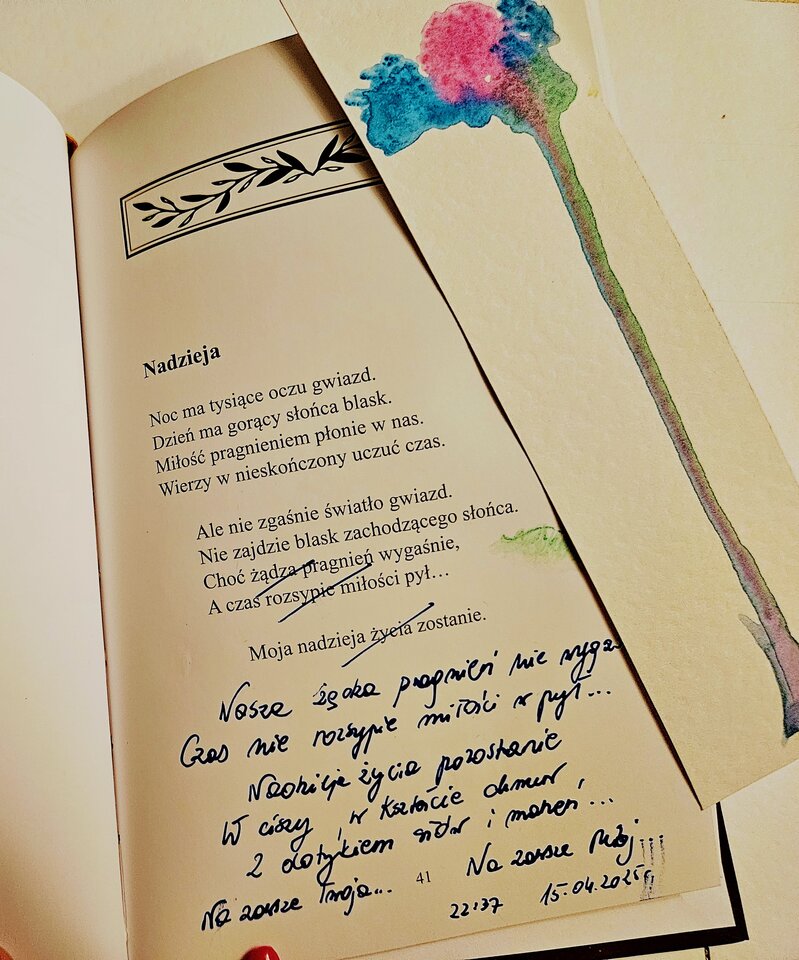 Nadzieja
Noc ma tysiące oczu gwiazd.
Dzień ma gorący słońca blask.
Miłość pragnieniem płonie w nas.
Wierzy w nieskończony uczuć czas.
Ale nie zgaśnie światło gwiazd.
Nie zajdzie blask zachodzącego słońca.
Choć żądza pragnień wygaśnie,
A czas rozsypie miłości pył...
Moja nadzieja życia zostanie.
Nasza żądza pragnień nie wyga
Czas nie rozsypie miłości w pył...
Nadzieja życia pozostanie
W ciszy, w kształcie chmur,
Z dotykiem słów i marzeń...
Na zawsze Twoja... Na zawsze Mój...
41
22:37 15.04.2025r